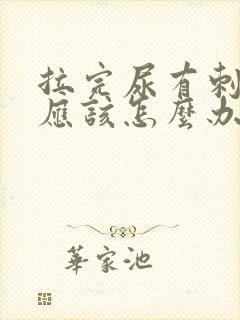 拉完尿有刺
應該怎麼办
華家池